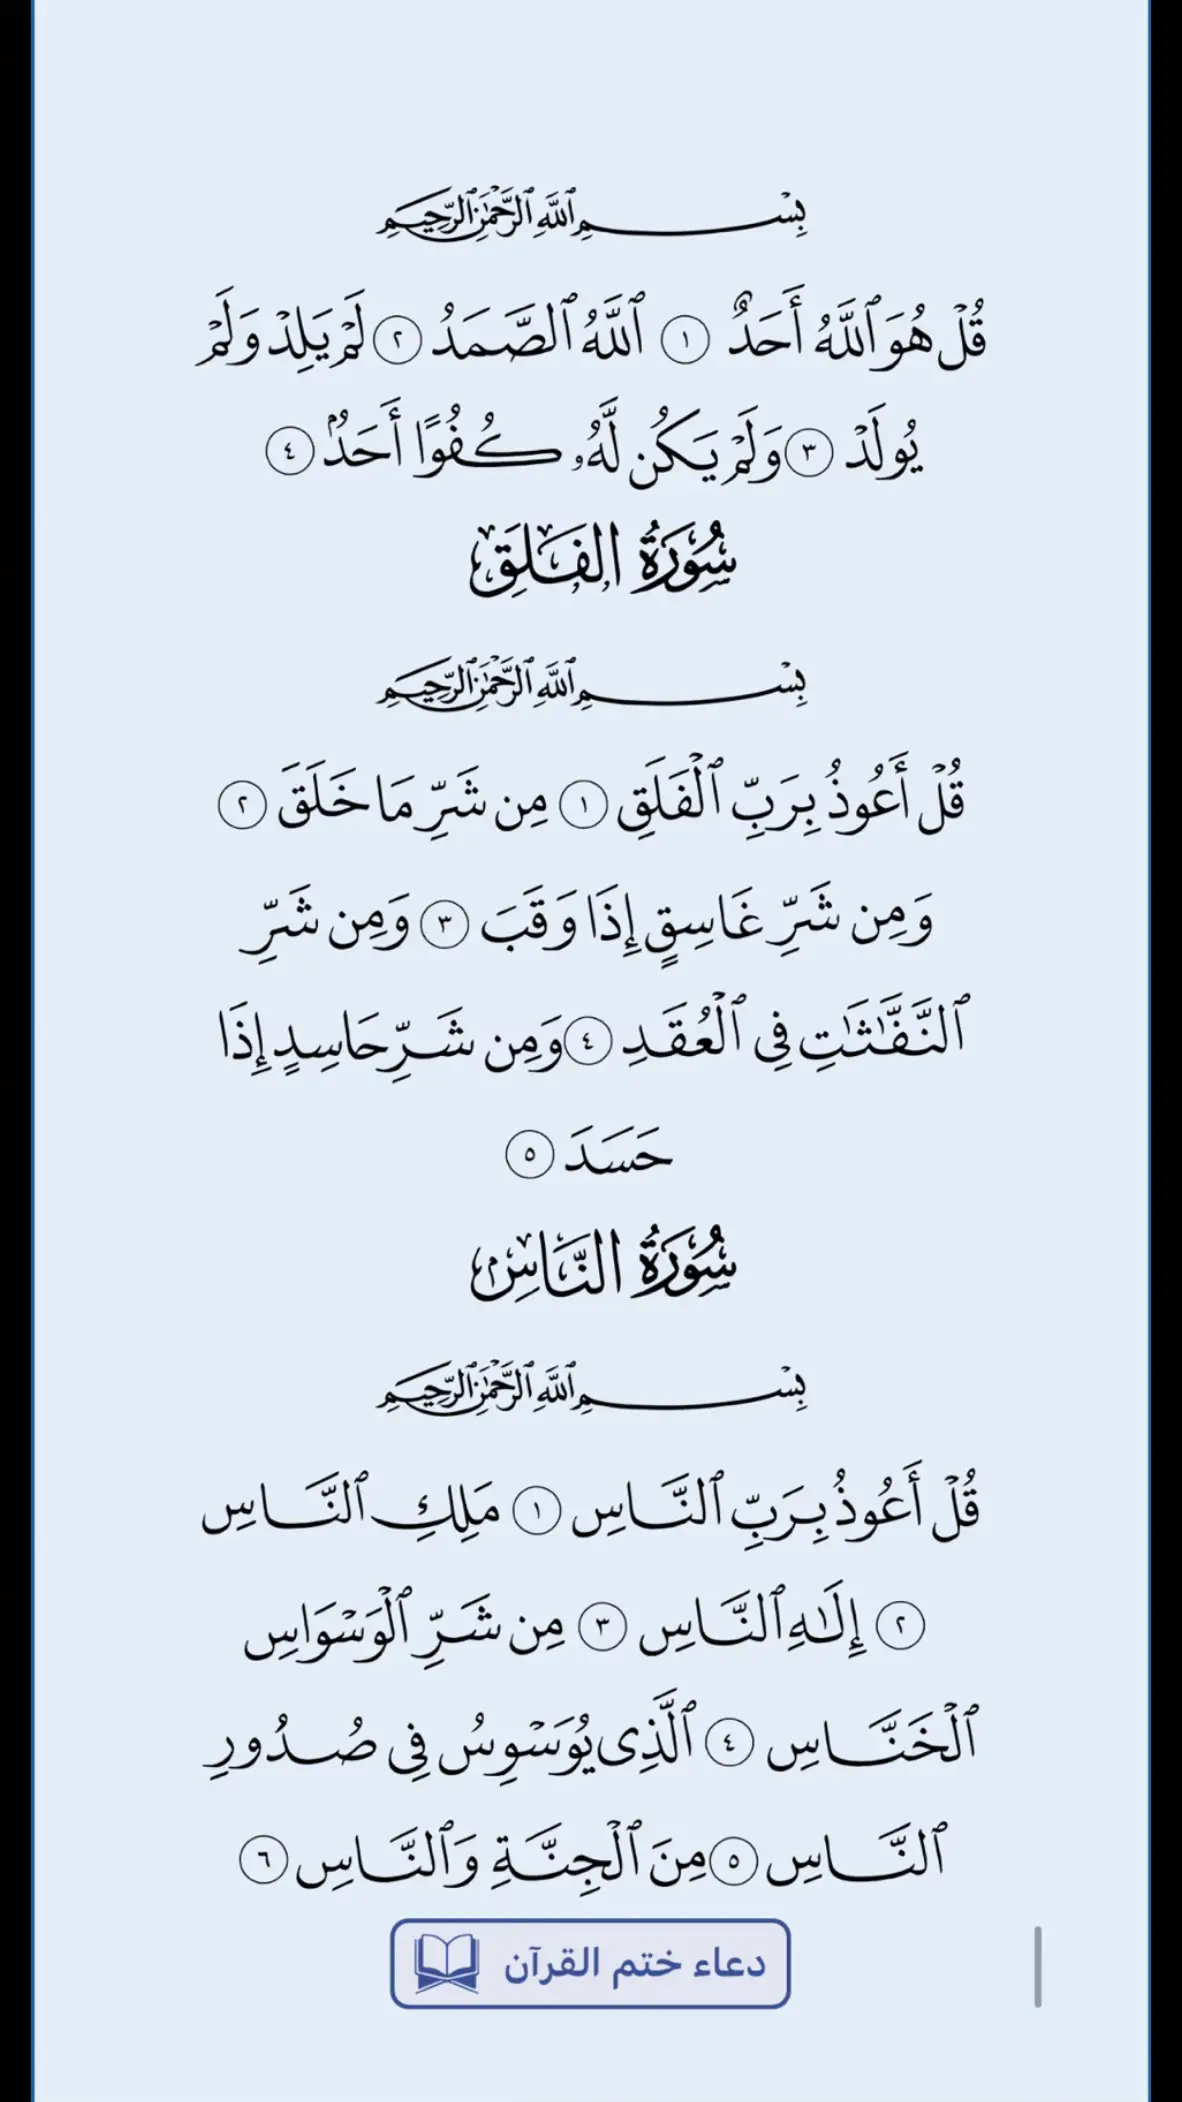 بِسْمِ ٱللَّهِ ٱلرَّحْمَٰنِ ٱلرَّحِيمِ
قُلْ هُوَ ٱللَّهُ أَحَدٌ ١ ٱللَّهُ ٱلصَّمَدُ ٢ لَمْ يَلِدْ وَلَمْ
يُولَدْ ٣ وَلَمْ يَكُن لَّهُۥ كُفُوًا أَحَدٌۢ ٤
سُورَةُ الفَلَقِ
بِسْمِ ٱللَّهِ ٱلرَّحْمَٰنِ ٱلرَّحِيمِ
قُلْ أَعُوذُ بِرَبِّ ٱلْفَلَقِ ١ مِن شَرِّ مَا خَلَقَ ٢
وَمِن شَرِّ غَاسِقٍ إِذَا وَقَبَ ٣ وَمِن شَرِّ
ٱلنَّفَّٰثَٰتِ فِى ٱلْعُقَدِ ٤ وَمِن شَرِّ حَاسِدٍ إِذَا
حَسَدَ ٥
سُورَةُ النَّاسِ
بِسْمِ ٱللَّهِ ٱلرَّحْمَٰنِ ٱلرَّحِيمِ
قُلْ أَعُوذُ بِرَبِّ ٱلنَّاسِ ١ مَلِكِ ٱلنَّاسِ
٢ إِلَٰهِ ٱلنَّاسِ ٣ مِن شَرِّ ٱلْوَسْوَاسِ
ٱلْخَنَّاسِ ٤ ٱلَّذِى يُوَسْوِسُ فِى صُدُورِ
ٱلنَّاسِ ٥ مِنَ ٱلْجِنَّةِ وَٱلنَّاسِ ٦
دعاء ختم القرآن